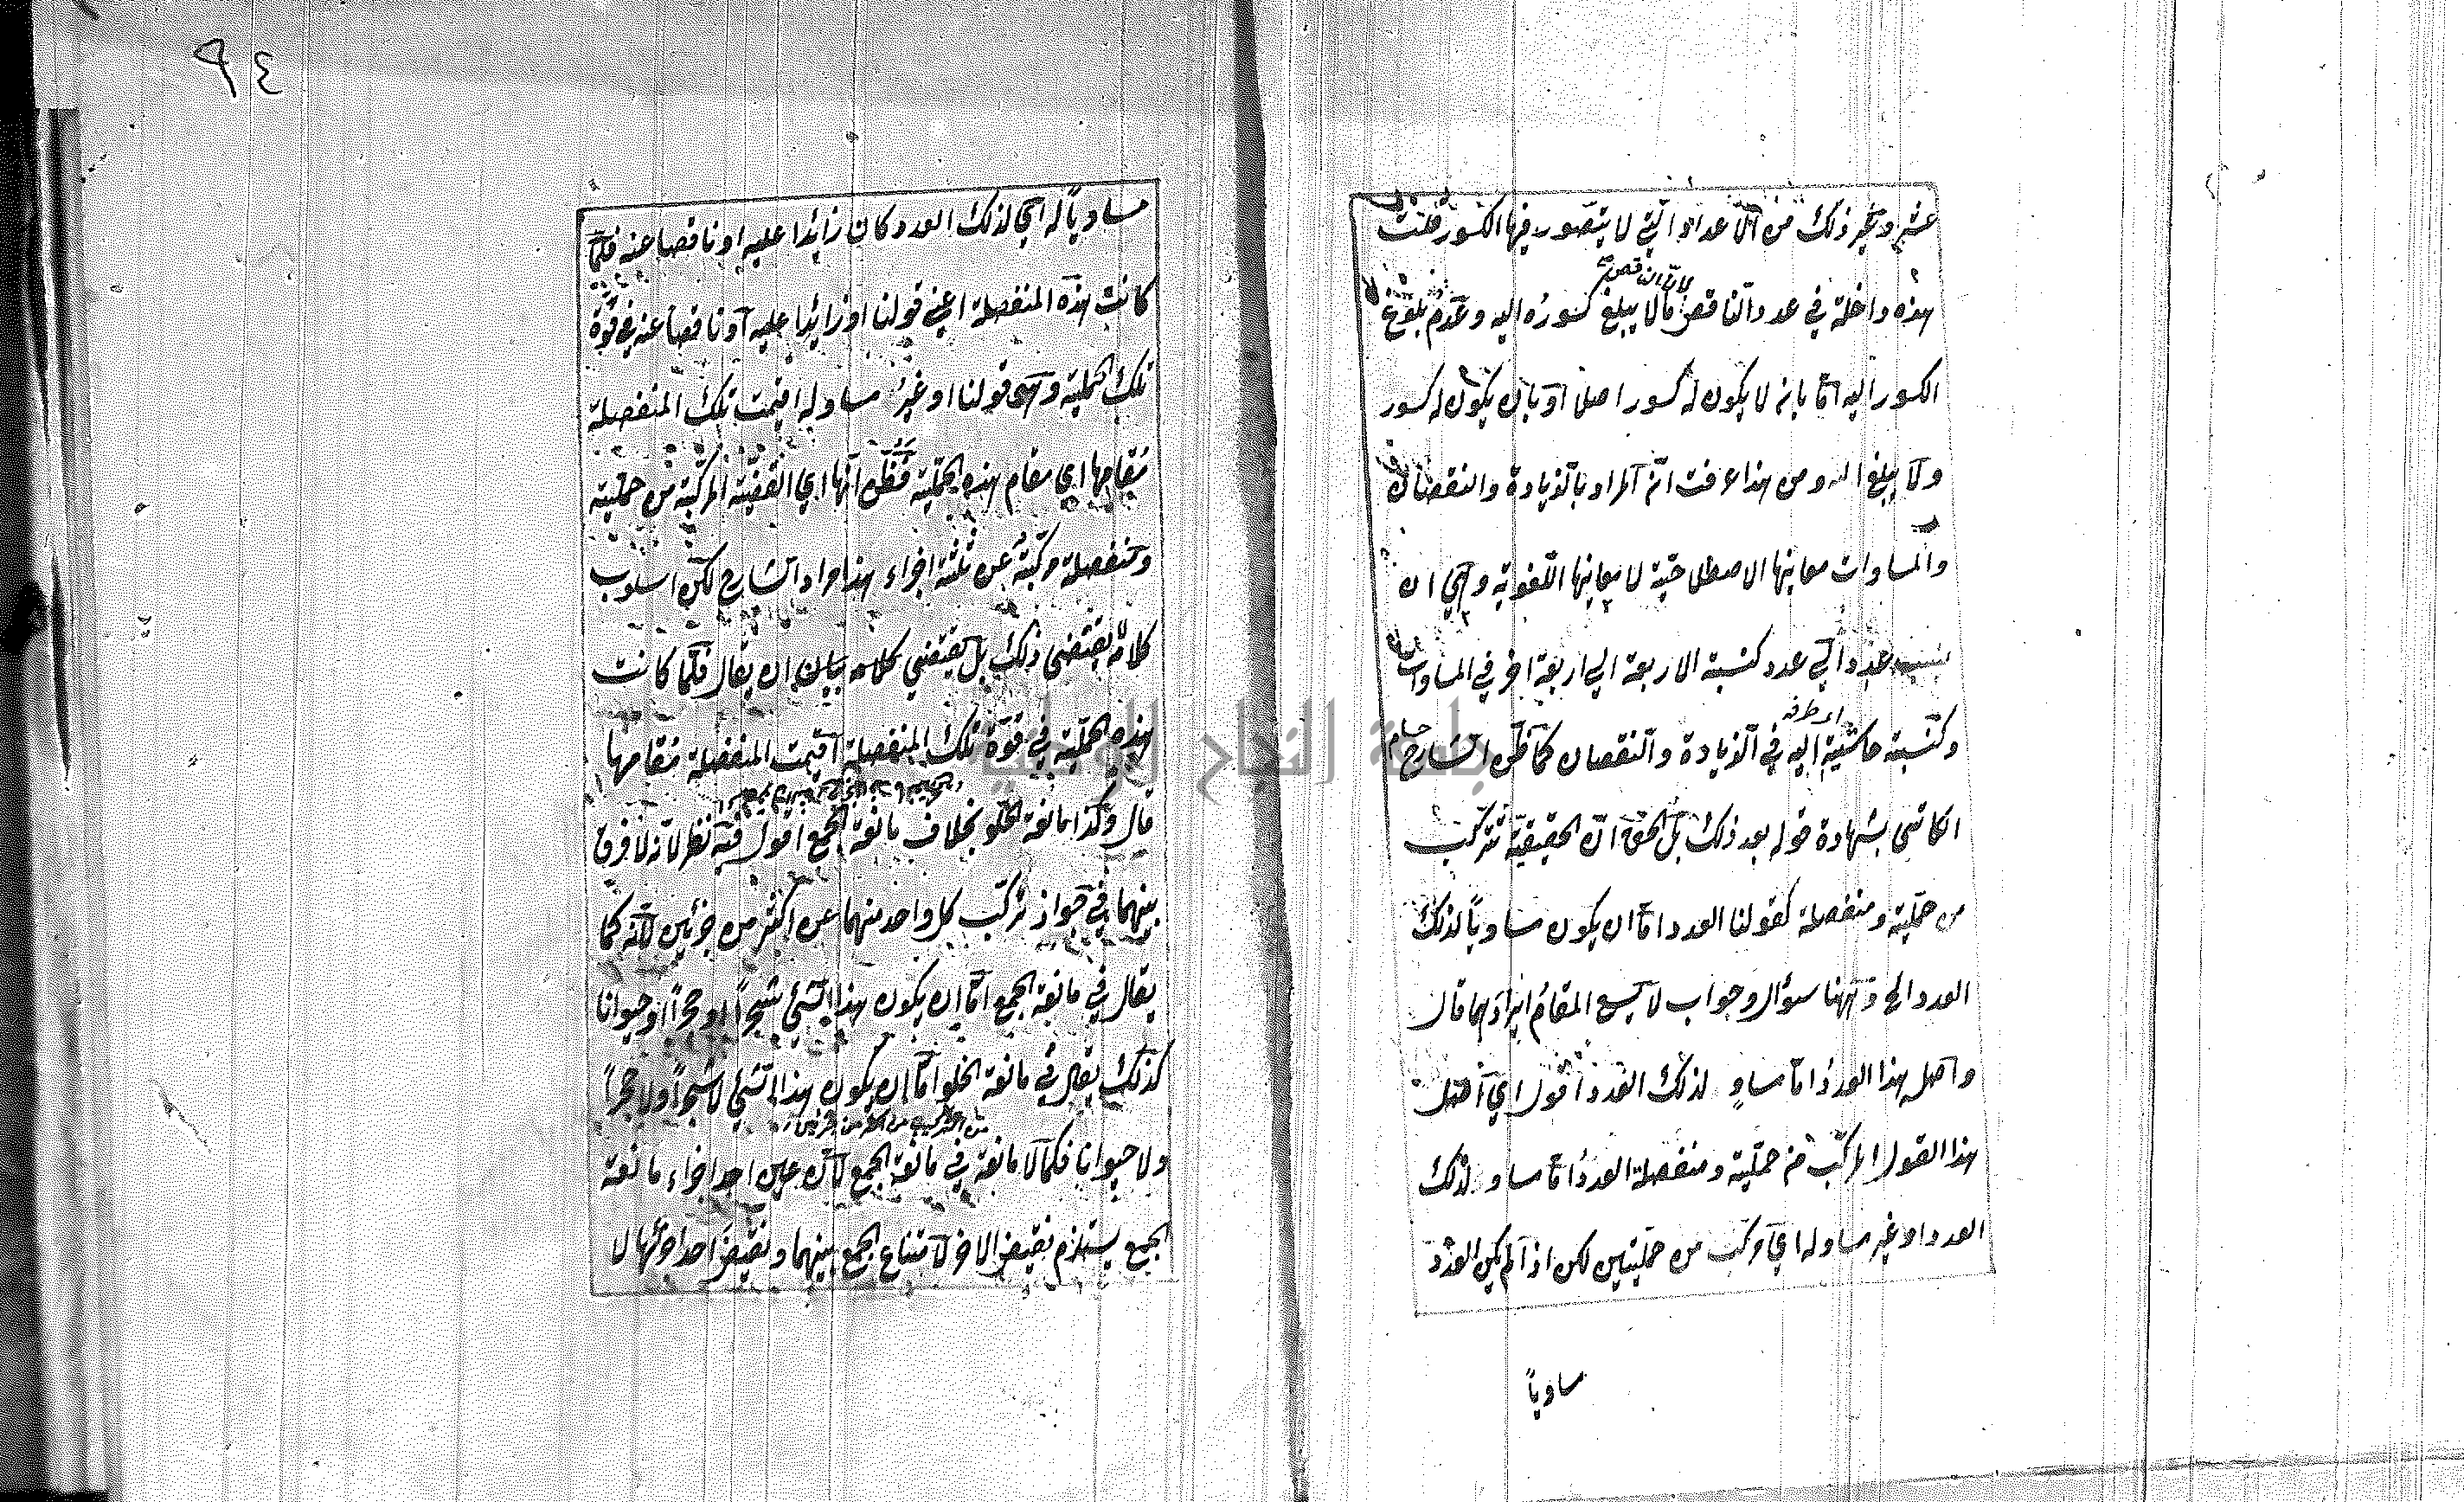 عشر وغير ذلك من الاعداد التي لا يتصور فيها الكسور قلت
هذه داخلة في عدد الناقص
لان الناقص
ما لا يبلغ كسوره اليه وعدم بلوغ
الكسور اليه اما بانه لا يكون له كسور اصلا او بان يكون له كسور
ولا يبلغ اليه ومن هذا عرفت ان المراد بالزيادة والنقصان
والمساوات معانيها الاصطلاحية لا معانيها اللغوية وهي ان
ينسب عدد الي عدد كنسبة الاربعة الي اربعة اخر في المساوات
اي طرفيه
وكنسبة حاشية اليه في الزيادة والنقصان كما ظن الشارح حسام
الكاتي بشهادة قوله بعد ذلك بل الحق ان الحقيقية تتركب
من حملية ومنفصلة كقولنا العدد اما ان يكون مساويا لذلك
العدد الخ وههنا سؤال وجواب لا يسع المقام ايرادهما قال
واصل هذا العدد اما مساو لذلك العدد اقول اي اصل
هذا القول المركب من حملية ومنفصلة العدد اما مساو لذلك
العدد او غير مساو له اي مركب من حمليتين لكن اذا لم يكن العدد
مساويا
٩٤
مساويا له اي لذلك العدد كان زائدا عليه او ناقصا عنه فلما
كانت هذه المنفصلة اعني قولنا او زائدا عليه او ناقصا عنه في قوة
تلك الحملية وهي قولنا او غير مساو له اقيمت تلك المنفصلة
مقامها اي مقام هذه الحملية فظن انها اي القضية المركبة من حملية
ومنفصلة مركبة عن ثلثة اجزاء هذا مراد الشارح لكن اسلوب
كلامه يقتضي ذلك بل يقتضي كلامه بيان ان يقال فلما كانت
هذه الحملية في قوة تلك المنفصلة اقيمت المنفصلة مقامها
قال وكذا مانعة الخلو بخلاف مانعة الجمع اقول فيه نظر لانه لا فرق
بينهما في جواز تركب كل واحد منهما عن اكثر من جزئين لانه كما
يقال في مانعة الجمع اما ان يكون هذا الشئ شجرا او حجرا او حيوانا
كذلك يقال في مانعة الخلو اما ان يكون هذا الشئ لا شجرا ولا حجرا
من التركيب من اكثر من جزئين
ولا حيوانا فكما لا مانعة في مانعة الجمع لان عين احد اجزاء مانعة
الجمع يستلزم نقيض الاخر لامتناع الجمع بينهما ونقيض احد اجزائها لا